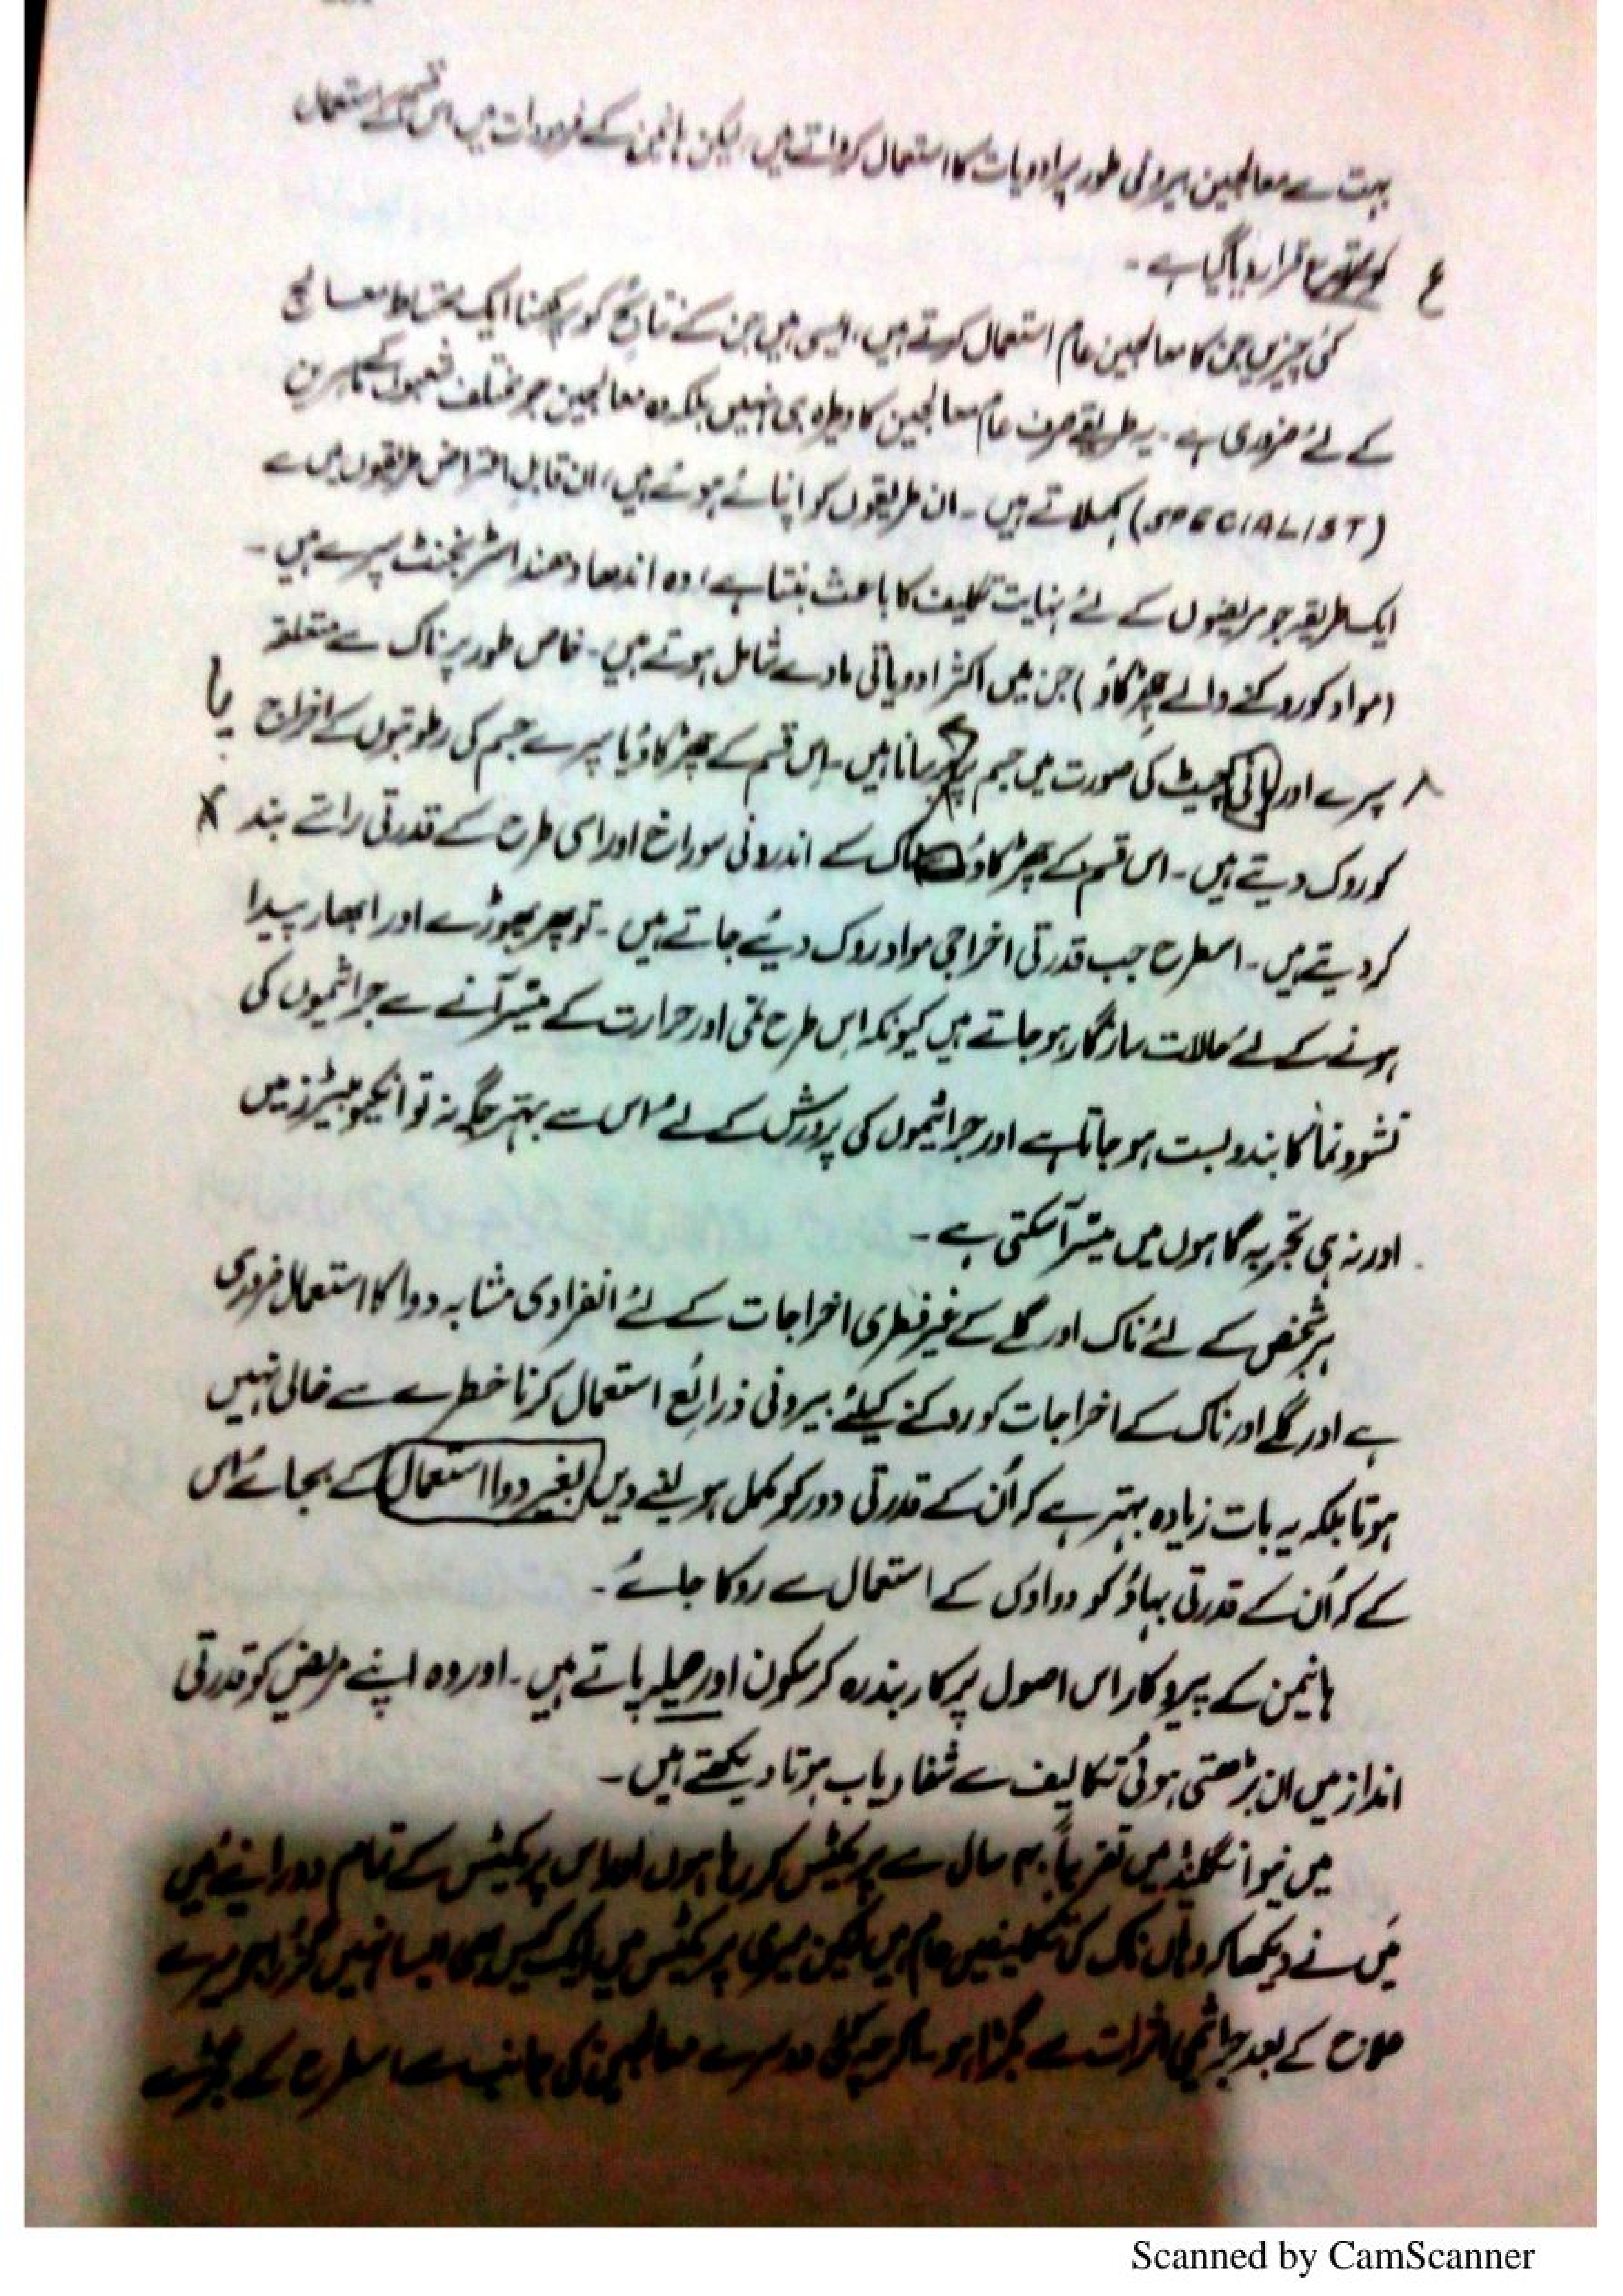 بہت سے معالجین بیرونی طور پر ادویات کا استعمال کرواتے ہیں، لیکن ہانیمن کے فرمودات میں اس قسم کے استعمال
کو ممنوع قرار دیا گیا ہے۔
ع
کئی چیزیں جن کا معالجین عام استعمال کرتے ہیں، ایسی ہیں جن کے نتائج کو پرکھنا ایک محتاط معالج
کے لئے ضروری ہے۔ یہ طریقے صرف عام معالجین کا وطیرہ ہی نہیں بلکہ وہ معالجین جو مختلف شعبوں کے ماہرین
(SPECIALIST) کہلاتے ہیں۔ ان طریقوں کو اپنائے ہوئے ہیں، ان قابلِ اعتراض طریقوں میں سے
ایک طریقہ جو مریضوں کے لئے نہایت تکلیف کا باعث بنتا ہے، وہ اندھا دھند اسٹرنجنٹ سپرے ہیں۔
(مواد کو روکنے والے چھڑکاؤ) جن میں اکثر ادویاتی مادے شامل ہوتے ہیں۔ خاص طور پر ناک سے متعلقہ
سپرے اور پانی کی چھینٹ کی صورت میں جسم پر برسانا ہیں۔ اِس قسم کے چھڑکاؤ یا سپرے جسم کی رطوبتوں کے اخراج یا
کو روک دیتے ہیں۔ اس قسم کے چھڑکاؤ ناک کے اندرونی سوراخ اور اسی طرح کے قدرتی راستے بند
کر دیتے ہیں۔ اسطرح جب قدرتی اخراجی مواد روک دیئے جاتے ہیں۔ تو پھر پھوڑے اور ابھار پیدا
ہونے کے لئے حالات سازگار ہو جاتے ہیں کیونکہ اِس طرح نمی اور حرارت کے میسّر آنے سے جراثیموں کی
نشوونما کا بندوبست ہو جاتا ہے اور جراثیموں کی پرورش کے لئے اس سے بہتر جگہ نہ تو انکیوبیٹرز میں
اور نہ ہی تجربہ گاہوں میں میسّر آ سکتی ہے۔
ہر شخص کے لئے ناک اور گلے کے غیر فطری اخراجات کے لئے انفرادی مشابہ دوا کا استعمال ضروری
ہے اور گلے اور ناک کے اخراجات کو روکنے کیلئے بیرونی ذرائع استعمال کرنا خطرے سے خالی نہیں
ہوتا بلکہ یہ بات زیادہ بہتر ہے کہ اُن کے قدرتی دور کو مکمل ہو لینے دیں بغیر دوا استعمال کے بجائے اس
کے کہ اُن کے قدرتی بہاؤ کو دواؤں کے استعمال سے روکا جائے۔
ہانیمن کے پیروکار اس اصول پر کاربند رہ کر سکون اور صلہ پاتے ہیں۔ اور وہ اپنے مریض کو قدرتی
انداز میں ان بڑھتی ہوئی تکالیف سے شفا یاب ہوتا دیکھتے ہیں۔
میں نیو انگلینڈ میں تقریباً ۴۰ سال سے پریکٹس کر رہا ہوں اور اس پریکٹس کے تمام دورانیے میں
میں نے دیکھا کہ وہاں ناک کی تکلیفیں عام ہیں لیکن میری پریکٹس میں ایک کیس بھی ایسا نہیں گزرا جو میرے
علاج کے بعد جراثیمی اثرات سے بگڑا ہو۔ اگرچہ کئی دوسرے معالجین کی جانب سے اسطرح کے بگڑے
Scanned by CamScanner